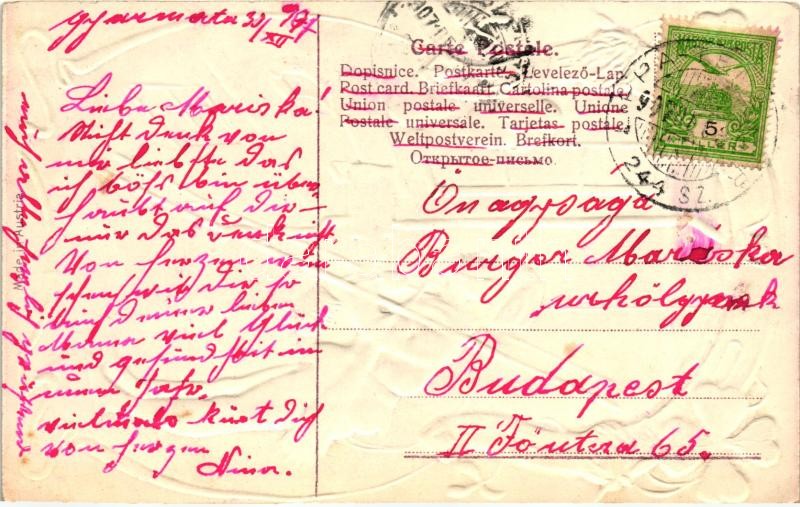 Gyarmata 30/XII 907
Liebe Mariska!
Nicht denk von
mir liebste das
ich böhs bin über-
haupt auf dir –
nur das
Von herzen wün
schen wir dir so
und deiner lieben
Mama viel Glück
und gesundheit im
neuen Jahr,
vielmals küsst dich
von herzen
Nina.
Made in Austria
Carte Postale.
Dopisnice. Postkarte. Levelező-Lap.
Post card. Briefkaart. Cartolina postale.
Union postale universelle. Unione
Postale universale. Tarjetas postale.
Weltpostverein. Brefkort.
Открытое письмо.
MAGYAR KIR. POSTA
5
FILLÉR
244 SZ.
Önagysága
Burger Mariska
urhölgynek
Budapest
II Fő utca 65.